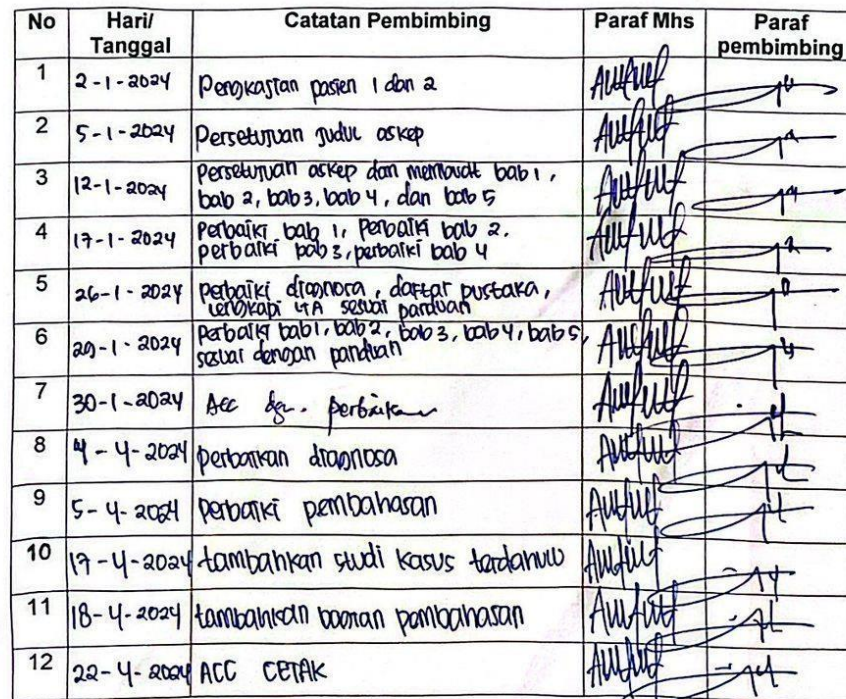 No Hari/ Tanggal Catatan Pembimbing Paraf Mhs Paraf pembimbing
1 2-1-2024 Pengkajian pasien 1 dan 2
2 5-1-2024 Persetujuan judul askep
3 12-1-2024 Persetujuan askep dan membuat bab 1,
bab 2, bab 3, bab 4, dan bab 5
4 17-1-2024 Perbaiki bab 1, Perbaiki bab 2,
perbaiki bab 3, perbaiki bab 4
5 26-1-2024 perbaiki diagnosa, daftar pustaka,
lengkapi LTA sesuai panduan
6 29-1-2024 Perbaiki bab 1, bab 2, bab 3, bab 4, bab 5,
sesuai dengan panduan
7 30-1-2024 Acc dgn. perbaikan
8 4-4-2024 perbaikan diagnosa
9 5-4-2024 perbaiki pembahasan
10 17-4-2024 tambahkan studi kasus terdahulu
11 18-4-2024 tambahkan bagian pembahasan
12 22-4-2024 ACC CETAK